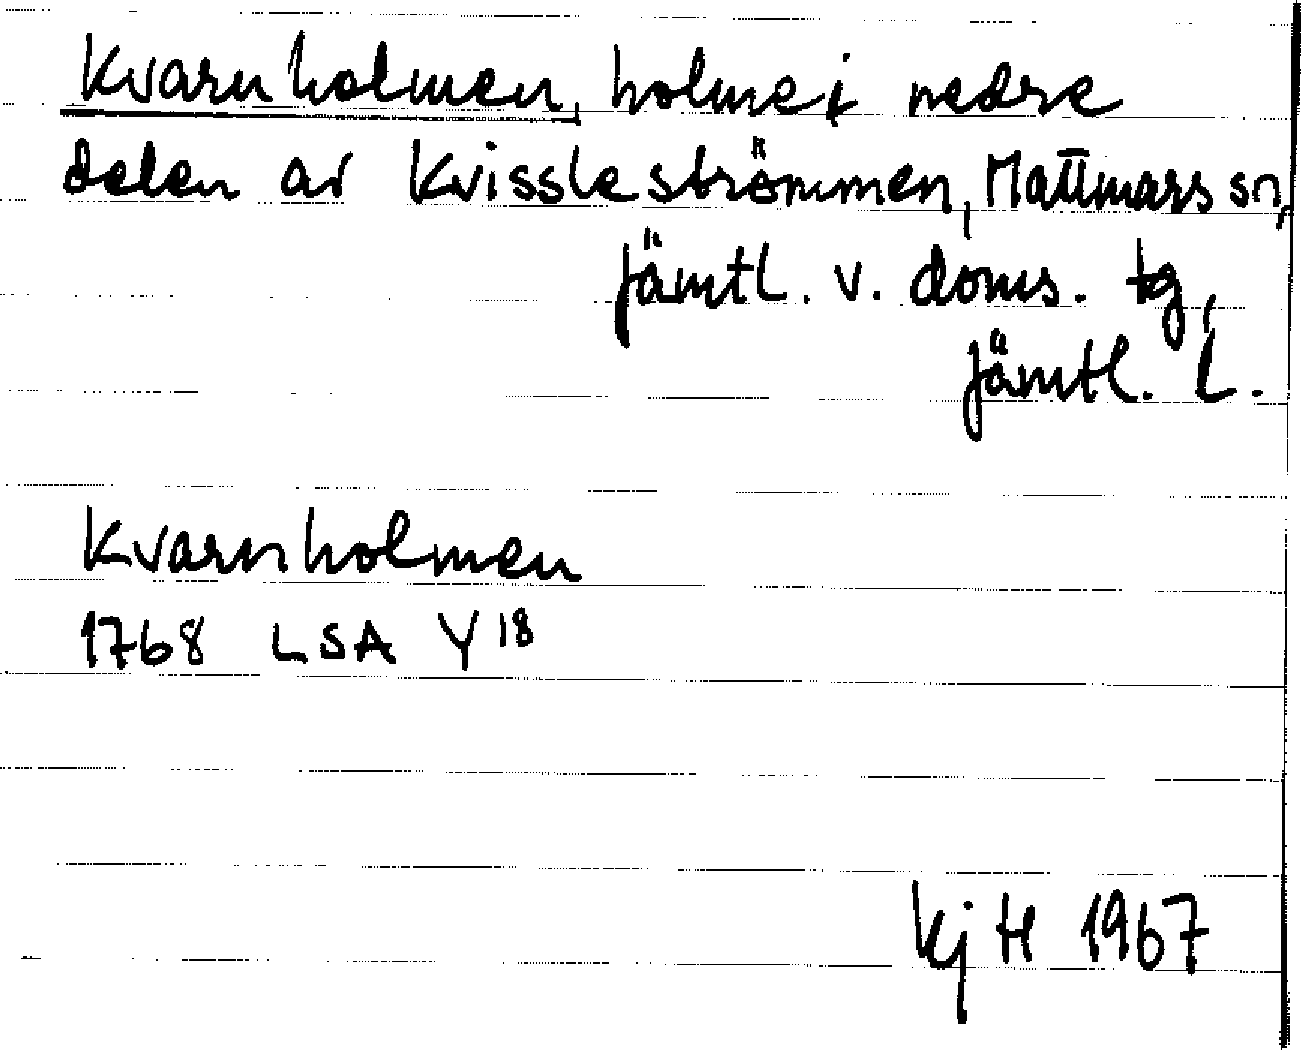 Kvarnholmen, holme i nedre
delen av Kvisslesströmmen, Mattmars sn,
Jämtl. v. doms. tg,
Jämtl. L.
Kvarnholmen
1768 LSA Y 18
Kj H 1967